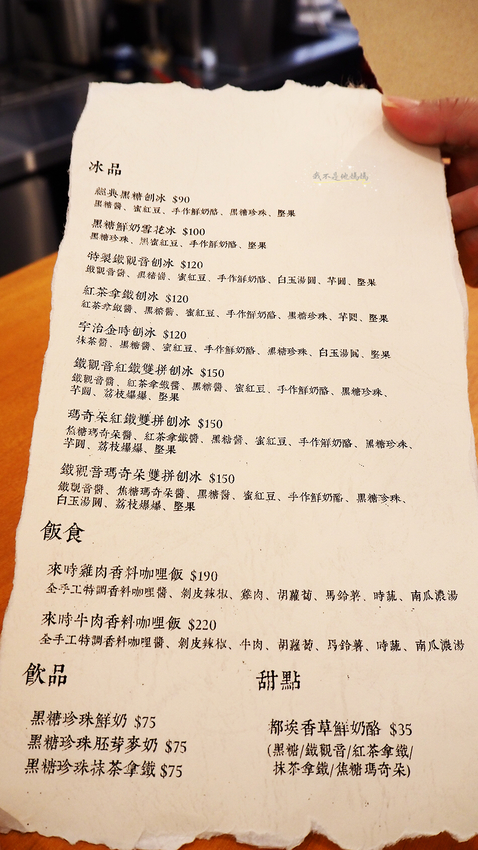 我不是地媽媽
冰品
經典黑糖刨冰 $90
黑糖醬、蜜紅豆、手作鮮奶酪、黑糖珍珠、堅果
黑糖鮮奶雪花冰 $100
黑糖珍珠、黑蜜紅豆、手作鮮奶酪、堅果
特製鐵觀音刨冰 $120
鐵觀音醬、黑糖醬、蜜紅豆、手作鮮奶酪、白玉湯圓、芋圓、堅果
紅茶拿鐵刨冰 $120
紅茶拿鐵醬、黑糖醬、蜜紅豆、手作鮮奶酪、黑糖珍珠、芋圓、堅果
宇治金時刨冰 $120
抹茶醬、黑糖醬、蜜紅豆、手作鮮奶酪、黑糖珍珠、白玉湯圓、堅果
鐵觀音紅鐵雙拼刨冰 $150
鐵觀音醬、紅茶拿鐵醬、黑糖醬、蜜紅豆、手作鮮奶酪、黑糖珍珠、
芋圓、荔枝爆爆、堅果
瑪奇朵紅鐵雙拼刨冰 $150
焦糖瑪奇朵醬、紅茶拿鐵醬、黑糖醬、蜜紅豆、手作鮮奶酪、黑糖珍珠、
芋圓、荔枝爆爆、堅果
鐵觀音瑪奇朵雙拼刨冰 $150
鐵觀音醬、焦糖瑪奇朵醬、黑糖醬、蜜紅豆、手作鮮奶酪、黑糖珍珠、
白玉湯圓、荔枝爆爆、堅果
飯食
來時雞肉香料咖哩飯 $190
全手工特調香料咖哩醬、剝皮辣椒、雞肉、胡蘿蔔、馬鈴薯、時蔬、南瓜濃湯
來時牛肉香料咖哩飯 $220
全手工特調香料咖哩醬、剝皮辣椒、牛肉、胡蘿蔔、馬鈴薯、時蔬、南瓜濃湯
飲品
黑糖珍珠鮮奶 $75
黑糖珍珠胚芽麥奶 $75
黑糖珍珠抹茶拿鐵 $75
甜點
都埃香草鮮奶酪 $35
(黑糖/鐵觀音/紅茶拿鐵/
抹茶拿鐵/焦糖瑪奇朵)